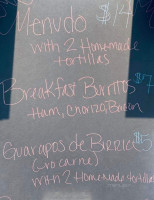 Menudo $14
with 2 Homemade
tortillas
Breakfast Burrito $7
Ham, Chorizo, Bacon
Guarapos de Birria $5
(Uro carne)
with 2 Homemade tortillas